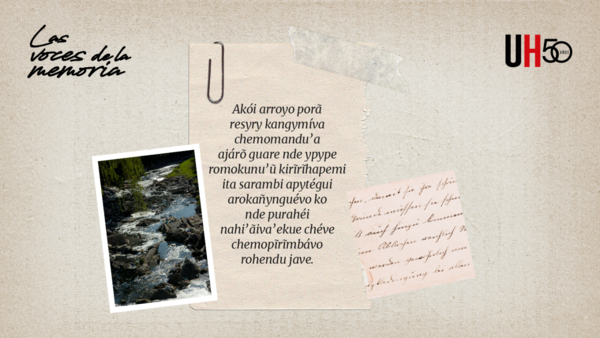 Las
voces de la
memoria
UH50
AÑOS
Akói arroyo porã
resyry kangymíva
chemomandu'a
ajárõ guare nde ypype
romokunu'ũ kirĩrĩhapemi
ita sarambi apytégui
arokañynguévo ko
nde purahéi
nahi'ãiva'ekue chéve
chemopĩrĩmbávo
rohendu jave.